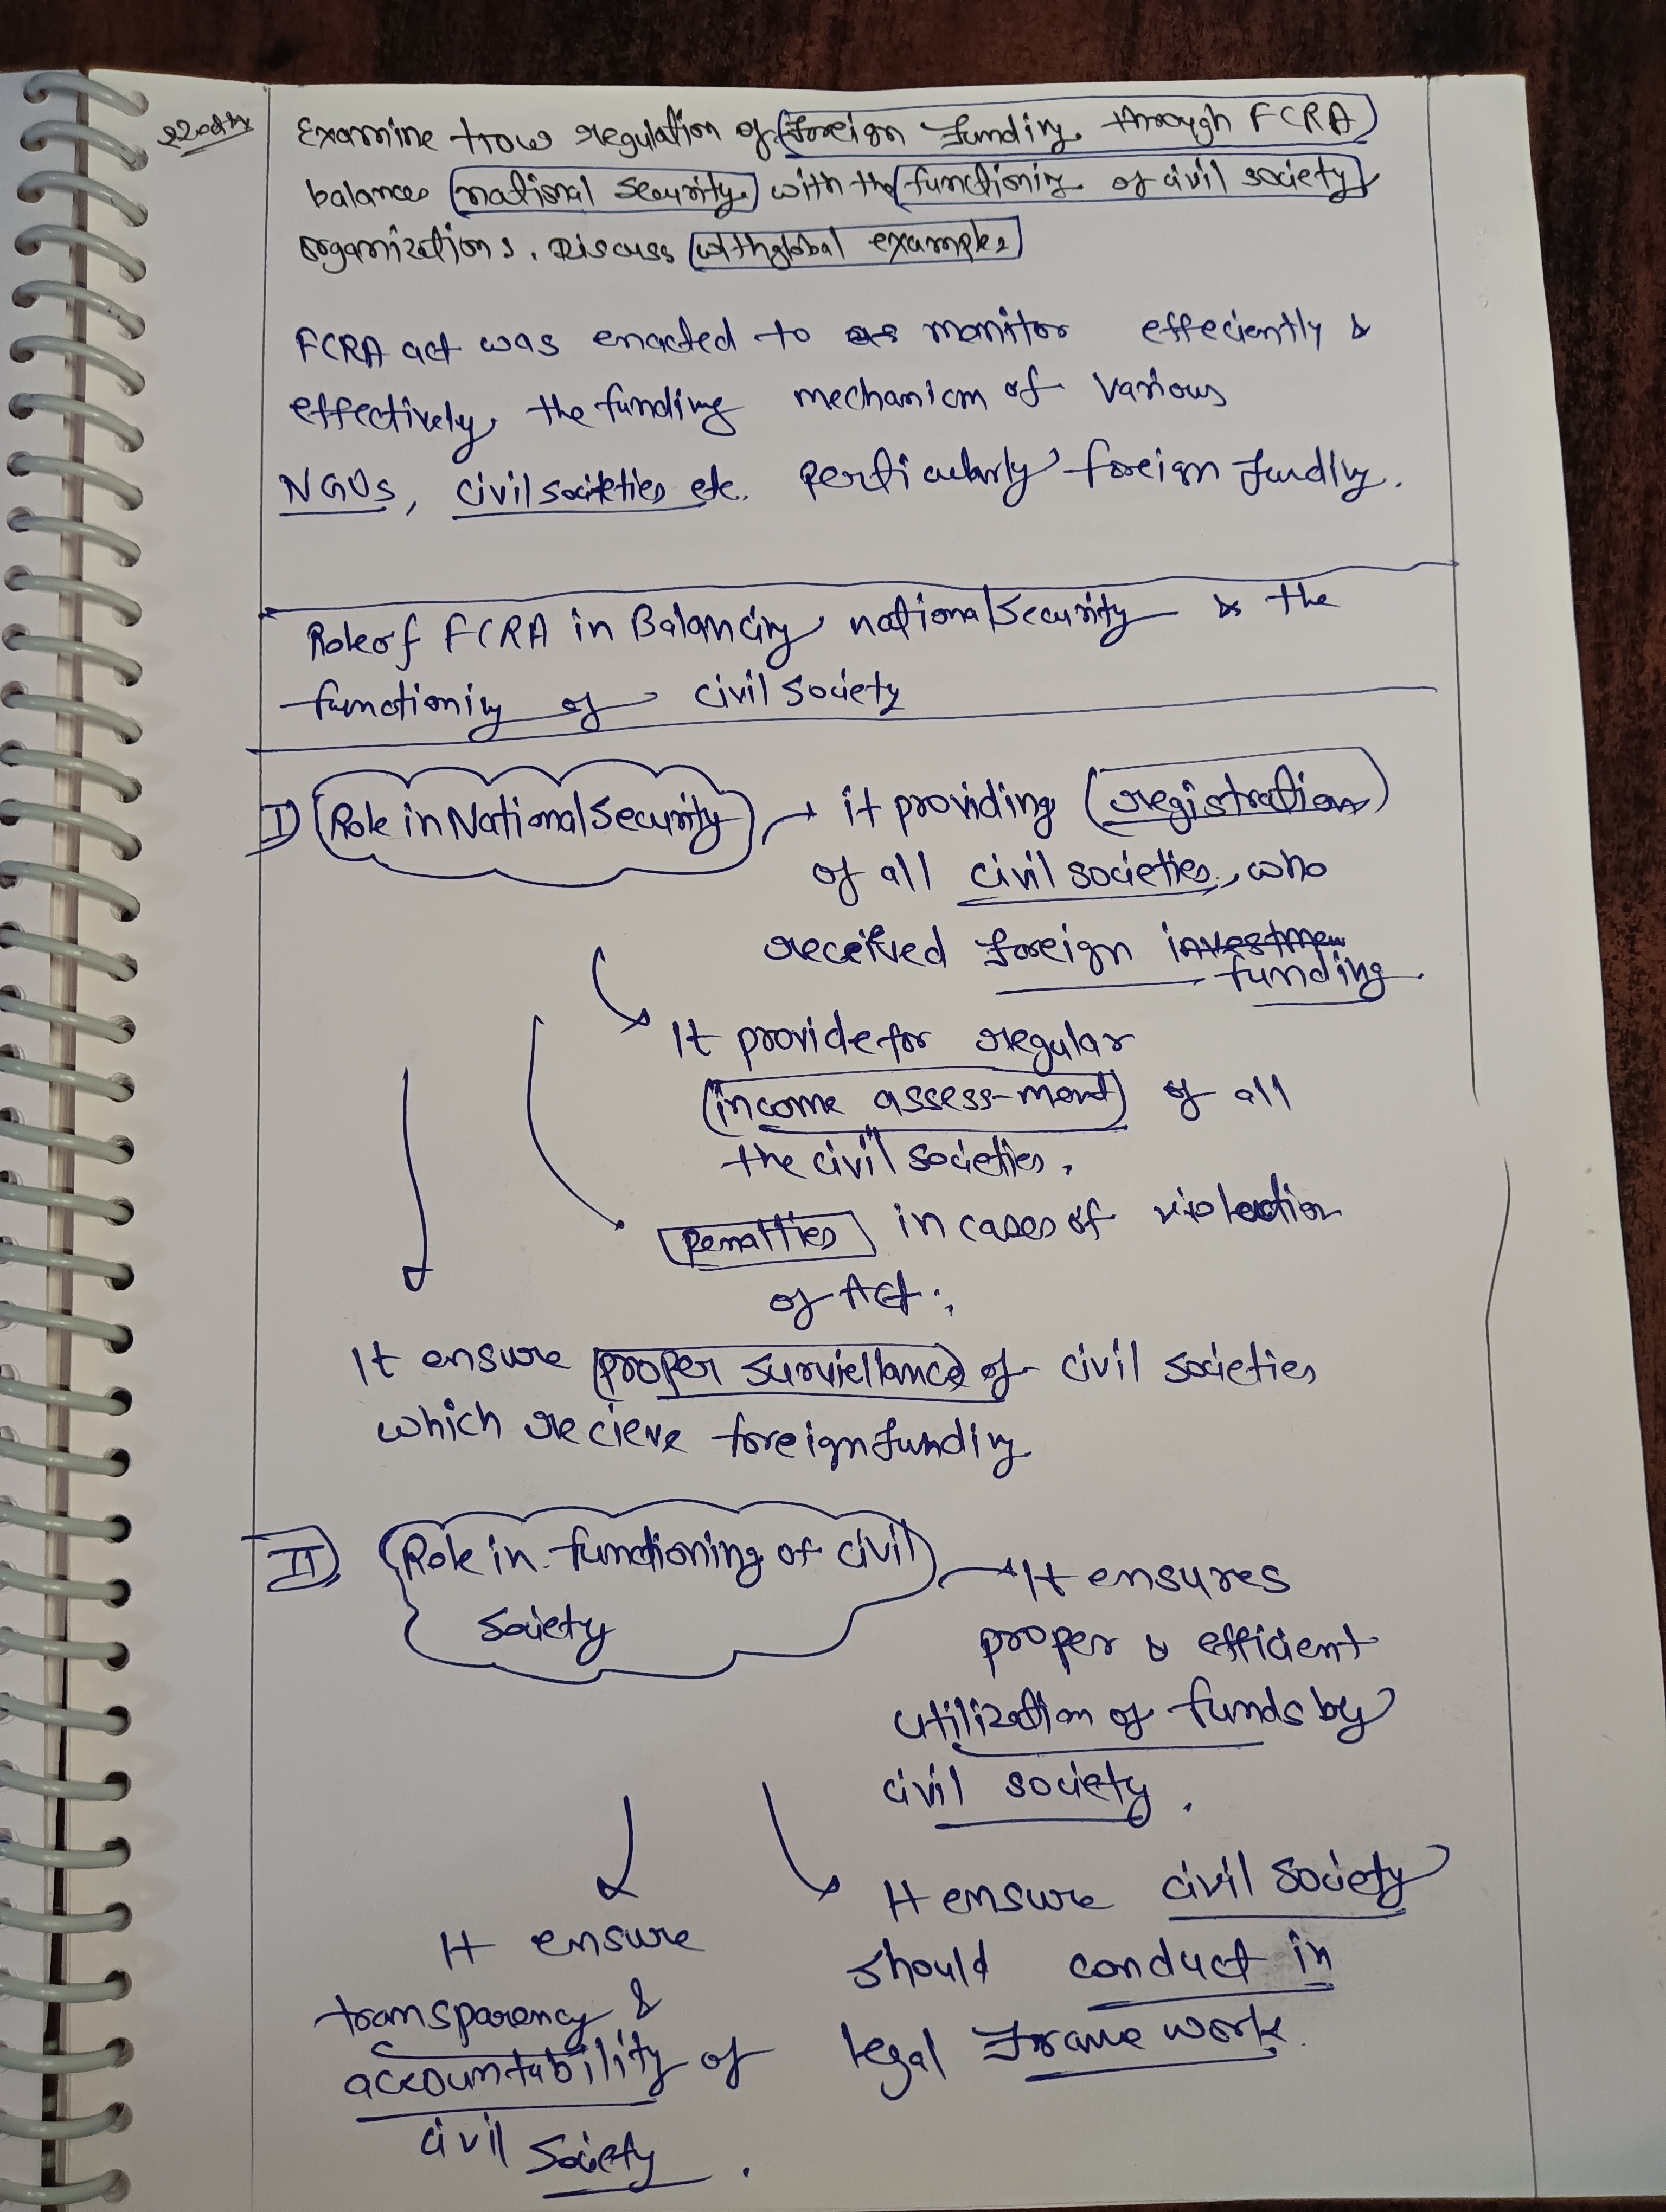 Examine how regulation of foreign funding through FCRA
balances national security with the functioning of civil society
organizations. Discuss with global examples
FCRA act was enacted to as monitor effeciently &
effectively the funding mechanism of various
NGOs, civil societies etc. perticularly foreign funding.
Role of FCRA in Balancing national security & the
functioning of civil society
I) Role in National Security → it providing registration
of all civil societies, who
received foreign investmen
funding.
It provide for regular
income assess-ment of all
the civil societies.
Penalties in cases of violation
of Act.
It ensure proper surviellance of civil societies
which recieve foreign funding
II) Role in functioning of civil
society
→ It ensures
proper & efficient
utilization of funds by
civil society.
It ensure civil society
should conduct in
legal Frame work.
It ensure
transparency &
accountability of
civil society.